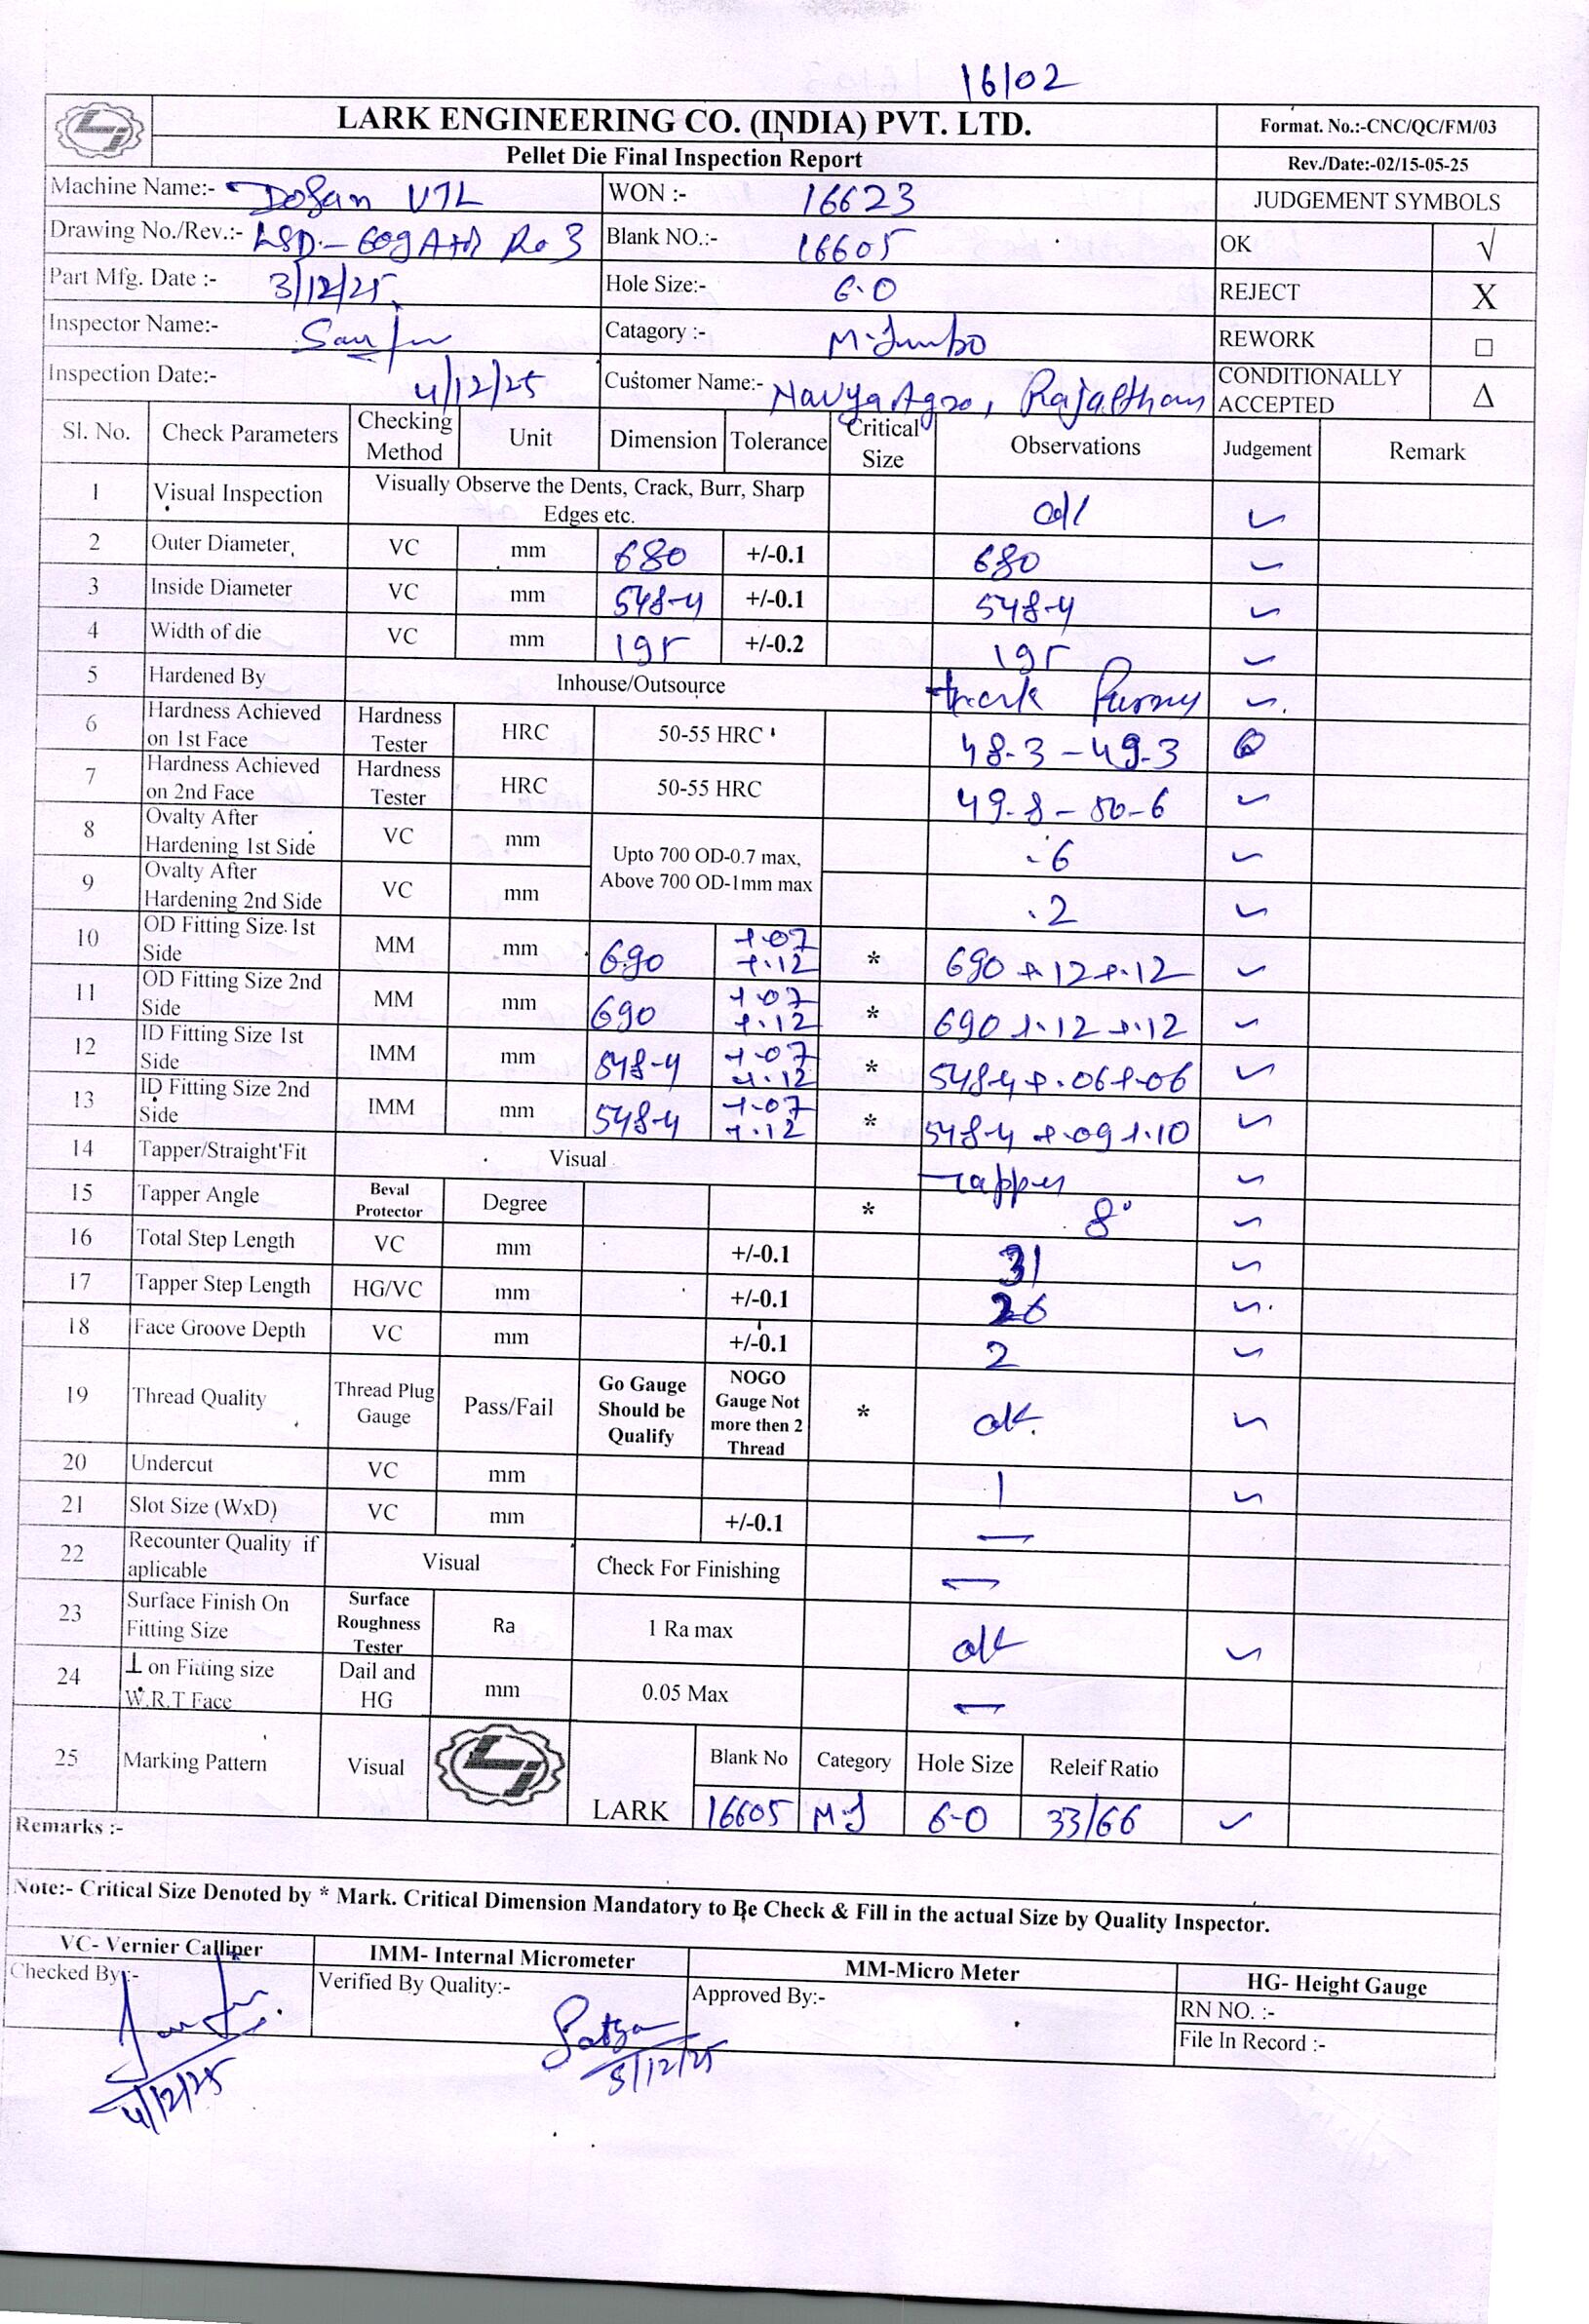 16/02
LARK ENGINEERING CO. (INDIA) PVT. LTD.
Format. No.:-CNC/QC/FM/03
Pellet Die Final Inspection Report
Rev./Date:-02/15-05-25
Machine Name:- Dosan VTL WON :- 16623 JUDGEMENT SYMBOLS
Drawing No./Rev.:- Blank NO.:- 16605 OK √
Part Mfg. Date :- 3/12/25 Hole Size:- 6.0 REJECT X
Inspector Name:- Catagory :- M.Jumbo REWORK □
Inspection Date:- 4/12/25 Customer Name:- Navya Agro, Rajasthan CONDITIONALLY ACCEPTED Δ
Sl. No. Check Parameters Checking Method Unit Dimension Tolerance Critical Size Observations Judgement Remark
1 Visual Inspection Visually Observe the Dents, Crack, Burr, Sharp Edges etc. ok ✓
2 Outer Diameter, VC mm 680 +/-0.1 680 ✓
3 Inside Diameter VC mm 548-4 +/-0.1 548-4 ✓
4 Width of die VC mm 195 +/-0.2 195 ✓
5 Hardened By Inhouse/Outsource ✓
6 Hardness Achieved on 1st Face Hardness Tester HRC 50-55 HRC 48-3 - 49-3
7 Hardness Achieved on 2nd Face Hardness Tester HRC 50-55 HRC 49-8 - 50-6 ✓
8 Ovalty After Hardening 1st Side VC mm Upto 700 OD-0.7 max, Above 700 OD-1mm max .6 ✓
9 Ovalty After Hardening 2nd Side VC mm .2 ✓
10 OD Fitting Size 1st Side MM mm 690 +.07 +.12 * 690 +.12 +.12 ✓
11 OD Fitting Size 2nd Side MM mm 690 +.07 +.12 * 690 +.12 +.12 ✓
12 ID Fitting Size 1st Side IMM mm 548-4 +.07 +.12 * 548-4 +.06 +.06 ✓
13 ID Fitting Size 2nd Side IMM mm 548-4 +.07 +.12 * 548-4 +.09 +.10 ✓
14 Tapper/Straight Fit Visual Tapper ✓
15 Tapper Angle Beval Protector Degree * 8° ✓
16 Total Step Length VC mm +/-0.1 31 ✓
17 Tapper Step Length HG/VC mm +/-0.1 26 ✓
18 Face Groove Depth VC mm +/-0.1 2 ✓
19 Thread Quality Thread Plug Gauge Pass/Fail Go Gauge Should be Qualify NOGO Gauge Not more then 2 Thread * ok. ✓
20 Undercut VC mm 1 ✓
21 Slot Size (WxD) VC mm +/-0.1 —
22 Recounter Quality if aplicable Visual Check For Finishing —
23 Surface Finish On Fitting Size Surface Roughness Tester Ra 1 Ra max ok ✓
24 ⊥ on Fitting size W.R.T Face Dail and HG mm 0.05 Max —
25 Marking Pattern Visual LARK Blank No Category Hole Size Releif Ratio
16605 M.J 6-0 33/66 ✓
Remarks :-
Note:- Critical Size Denoted by * Mark. Critical Dimension Mandatory to Be Check & Fill in the actual Size by Quality Inspector.
VC- Vernier Calliper IMM- Internal Micrometer MM-Micro Meter HG- Height Gauge
Checked By:- Verified By Quality:- Approved By:- RN NO. :-
File In Record :-
4/12/25 5/12/25